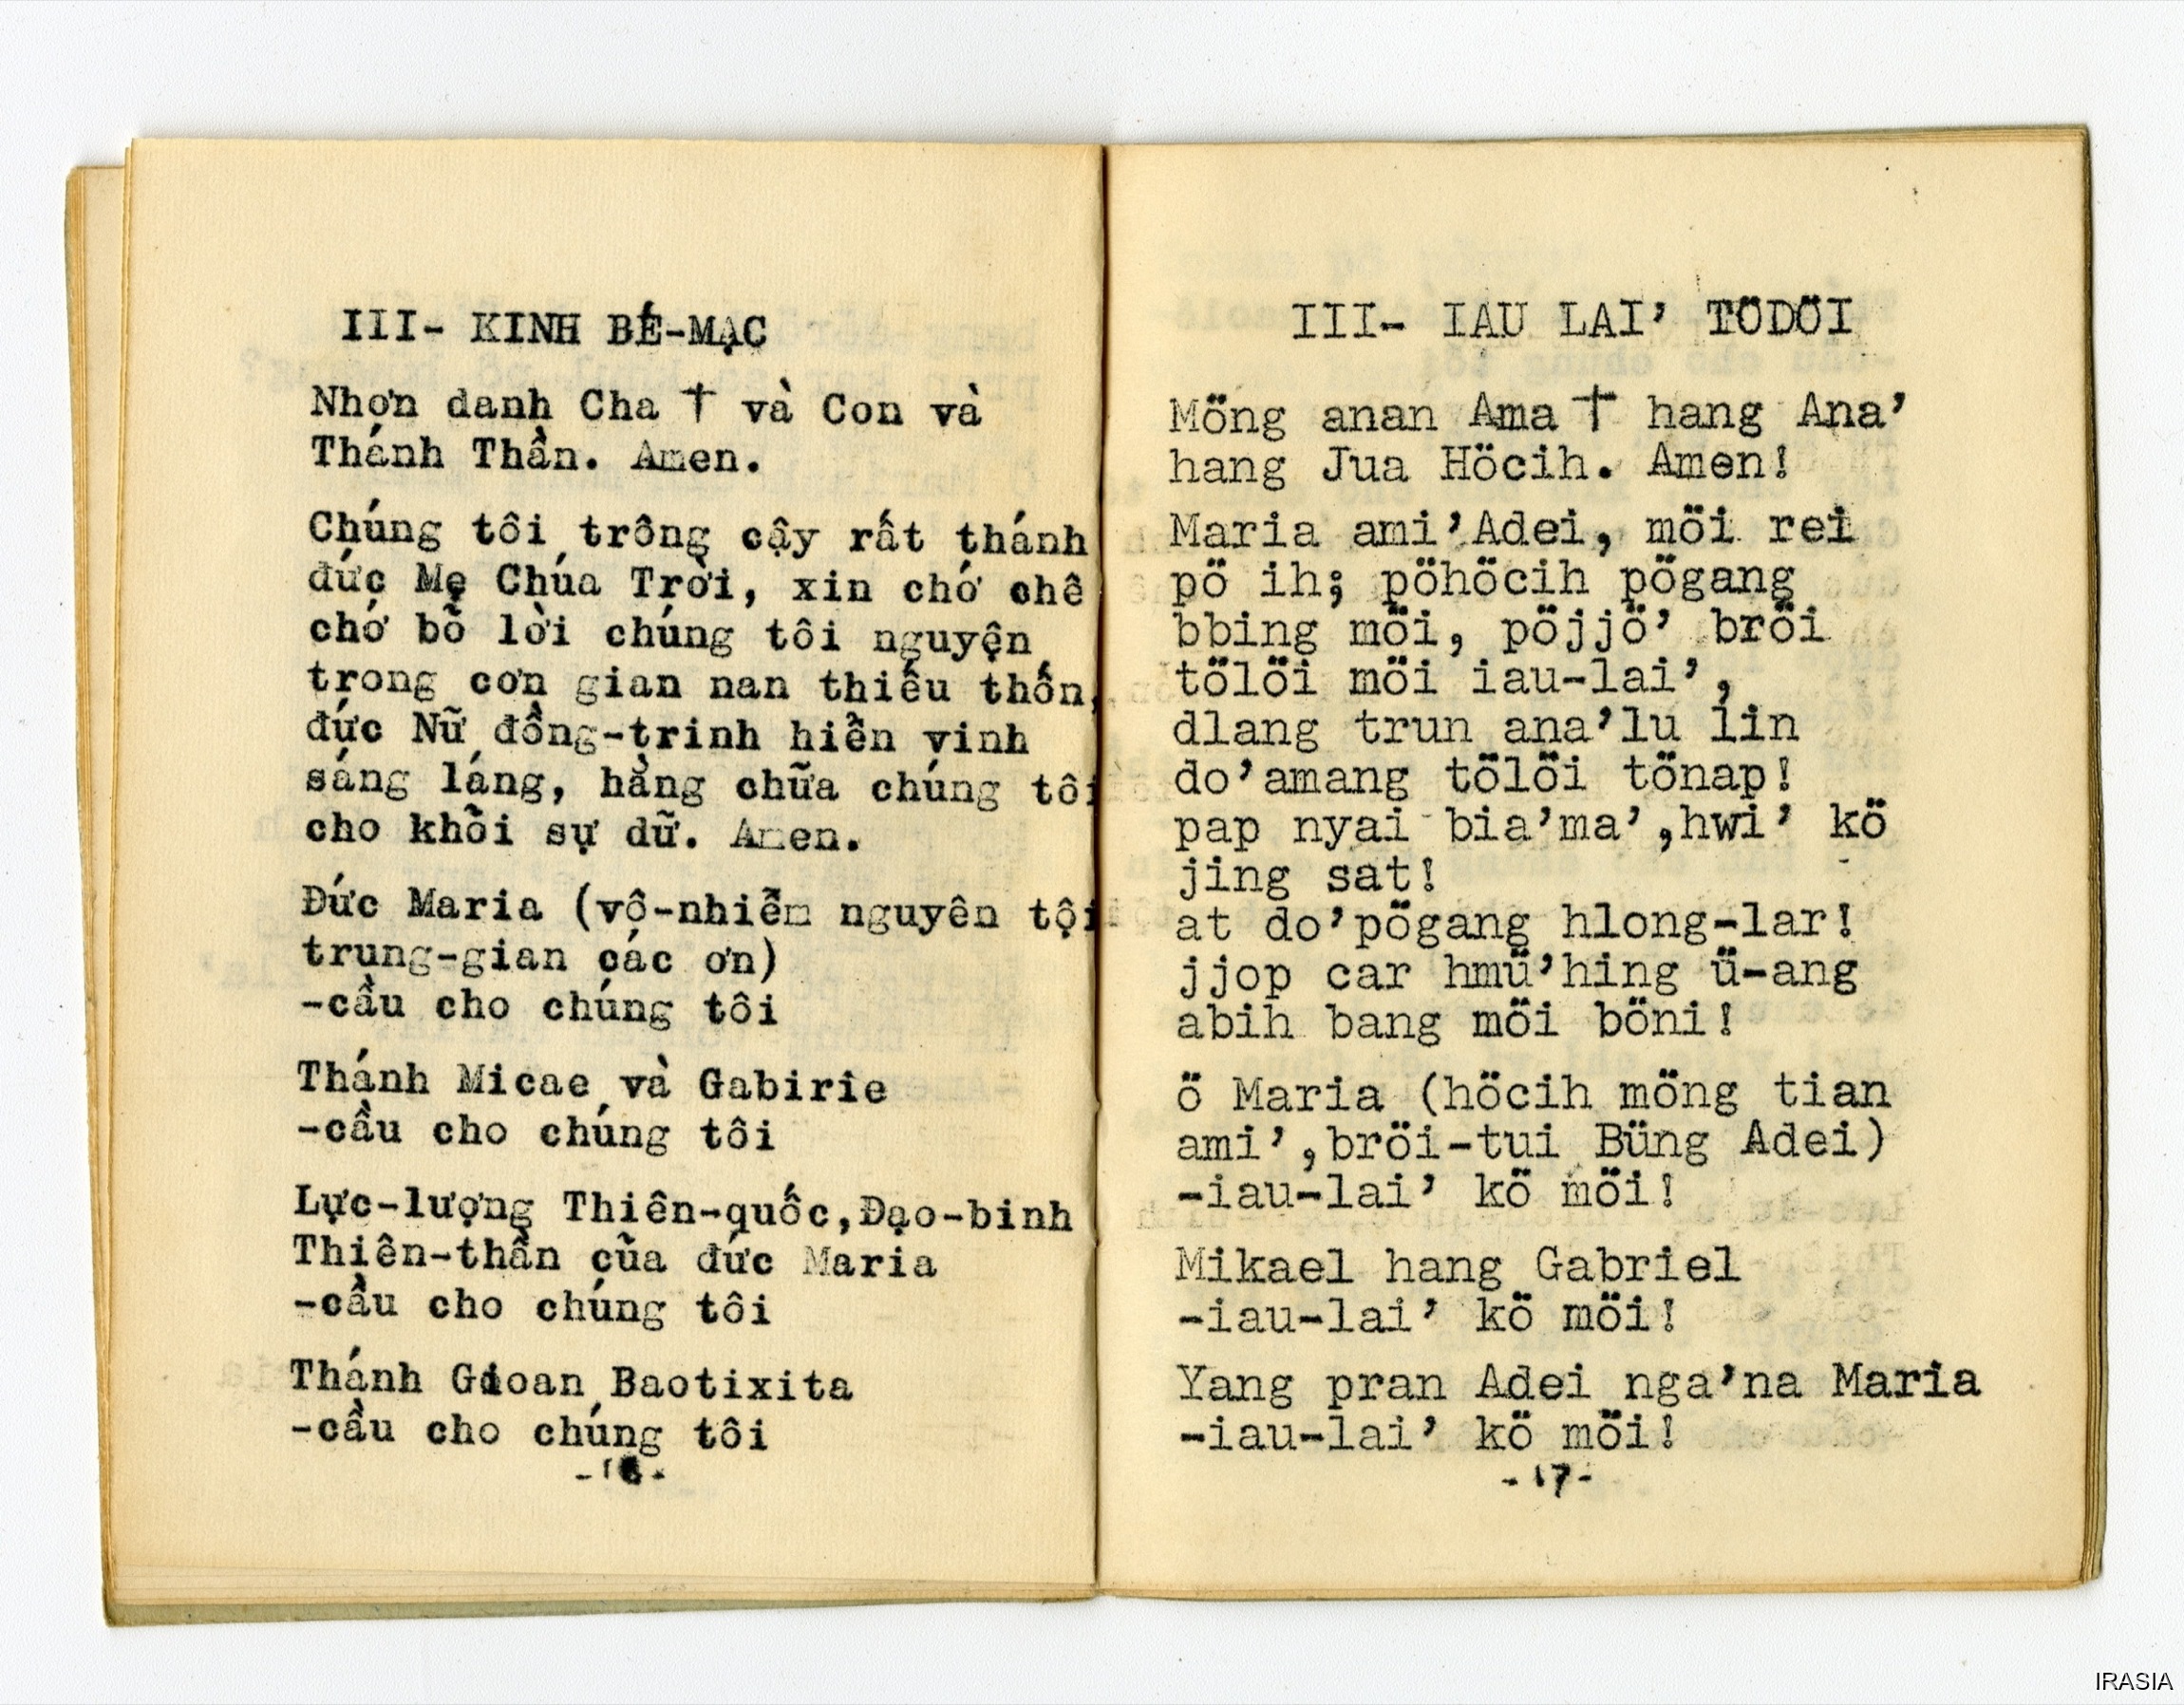 III- KINH BẾ-MẠC
Nhơn danh Cha † và Con và
Thánh Thần. Amen.
Chúng tôi trông cậy rất thánh
đức Mẹ Chúa Trời, xin chớ chê
chớ bỏ lời chúng tôi nguyện
trong cơn gian nan thiếu thốn,
đức Nữ đồng-trinh hiển vinh
sáng láng, hằng chữa chúng tôi
cho khỏi sự dữ. Amen.
Đức Maria (vô-nhiễm nguyên tội
trung-gian các ơn)
-cầu cho chúng tôi
Thánh Micae và Gabirie
-cầu cho chúng tôi
Lực-lượng Thiên-quốc,Đạo-binh
Thiên-thần của đức Maria
-cầu cho chúng tôi
Thánh Gioan Baotixita
-cầu cho chúng tôi
-16-
III- IAU LAI' TÖDÖI
Möng anan Ama † hang Ana'
hang Jua Höcih. Amen!
Maria ami'Adei, möi rei
pö ih; pöhöcih pögang
bbing möi, pöjjö' bröi
tölöi möi iau-lai',
dlang trun ana'lu lin
do'amang tölöi tönap!
pap nyai bia'ma',hwi' kö
jing sat!
at do'pögang hlong-lar!
jjop car hmü'hing ü-ang
abih bang möi böni!
ö Maria (höcih möng tian
ami',bröi-tui Büng Adei)
-iau-lai' kö möi!
Mikael hang Gabriel
-iau-lai' kö möi!
Yang pran Adei nga'na Maria
-iau-lai' kö möi!
-17-
IRASIA